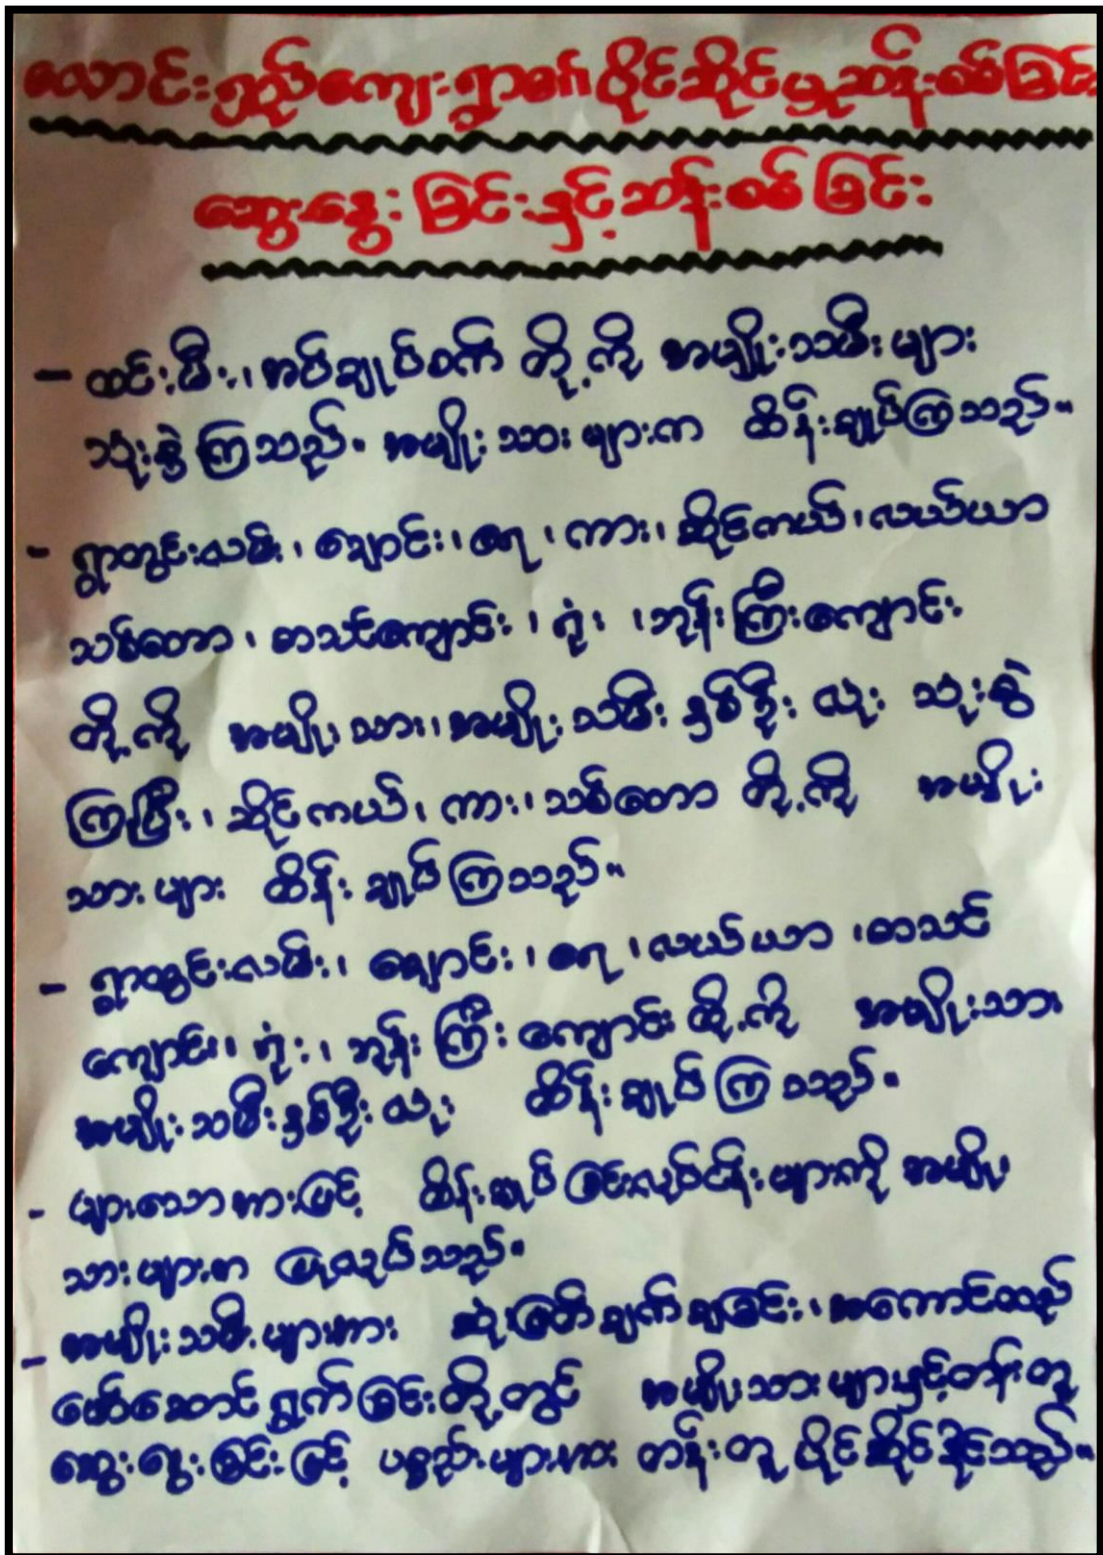 လောင်းရှည်ကျေးရွာ၏ ပိုင်ဆိုင်မှုဆန်းစစ်ခြင်း
ဆွေးနွေးခြင်းနှင့်ဆန်းစစ်ခြင်း
- ထင်းမီး၊ အပ်ချုပ်စက် တို့ကို အမျိုးသမီးများ
သုံးစွဲကြသည်။ အမျိုးသားများက ထိန်းချုပ်ကြသည်။
- ရွာတွင်းလမ်း၊ ချောင်း၊ ရေ၊ ကား၊ ဆိုင်ကယ်၊ လယ်ယာ
သစ်တော၊ စာသင်ကျောင်း၊ ရုံး၊ ဘုန်းကြီးကျောင်း
တို့ကို အမျိုးသား၊ အမျိုးသမီး နှစ်ဦးလုံး သုံးစွဲ
ကြပြီး၊ ဆိုင်ကယ်၊ ကား၊ သစ်တော တို့ကို အမျိုး
သားများ ထိန်းချုပ်ကြသည်။
- ရွာတွင်းလမ်း၊ ချောင်း၊ ရေ၊ လယ်ယာ၊ စာသင်
ကျောင်း၊ ရုံး၊ ဘုန်းကြီးကျောင်းတို့ကို အမျိုးသား
အမျိုးသမီးနှစ်ဦးလုံး ထိန်းချုပ်ကြသည်။
- များသောအားဖြင့် ထိန်းချုပ်ခြင်းလုပ်ငန်းများကို အမျိုး
သားများက ပြုလုပ်သည်။
- အမျိုးသမီးများအား ဆုံးဖြတ်ချက်ချခြင်း၊ အကောင်ထည်
ဖော်ဆောင်ရွက်ခြင်းတို့တွင် အမျိုးသားများနှင့်တန်းတူ
ဆွေးနွေးခြင်းဖြင့် ပစ္စည်းများအား တန်းတူ ပိုင်ဆိုင်နိုင်သည်။